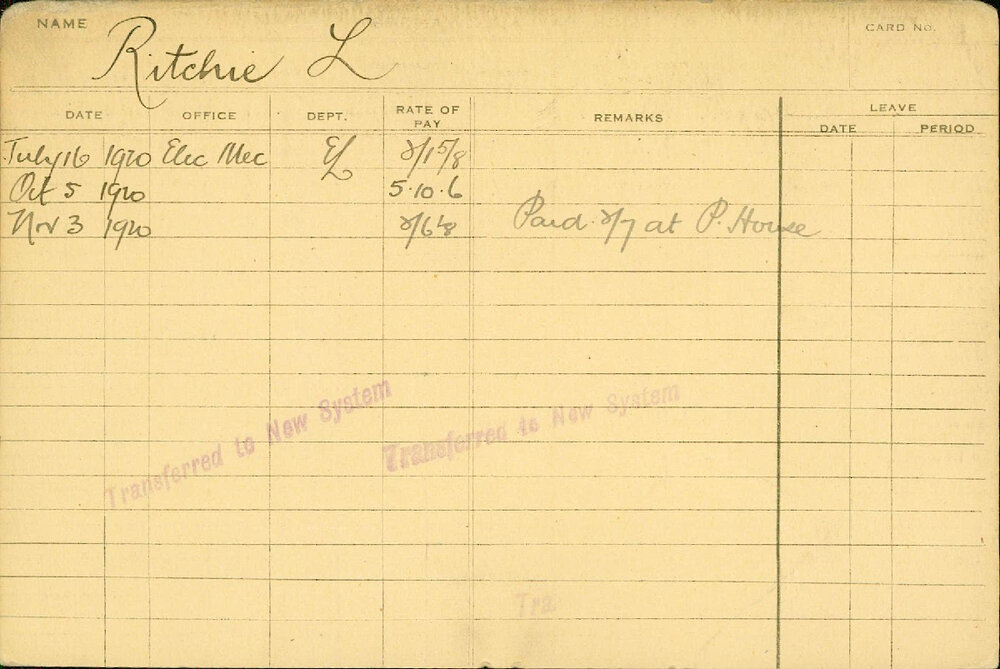 NAME CARD NO.
Ritchie L
DATE OFFICE DEPT. RATE OF PAY REMARKS LEAVE
DATE PERIOD
July 16 1920 Elec Mec EL 2/1 5/8
Oct 5 1920 5.10.6
Nov 3 1920 Paid 2/7 at P. House
Transferred to New System
Transferred to New System
Tra